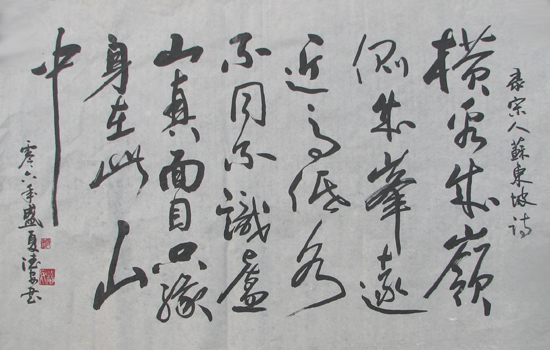 录宋人蘇東坡詩
横看成嶺
側成峯遠
近高低各
不同不識廬
山真面目只緣
身在此山
中
零六年盛夏书